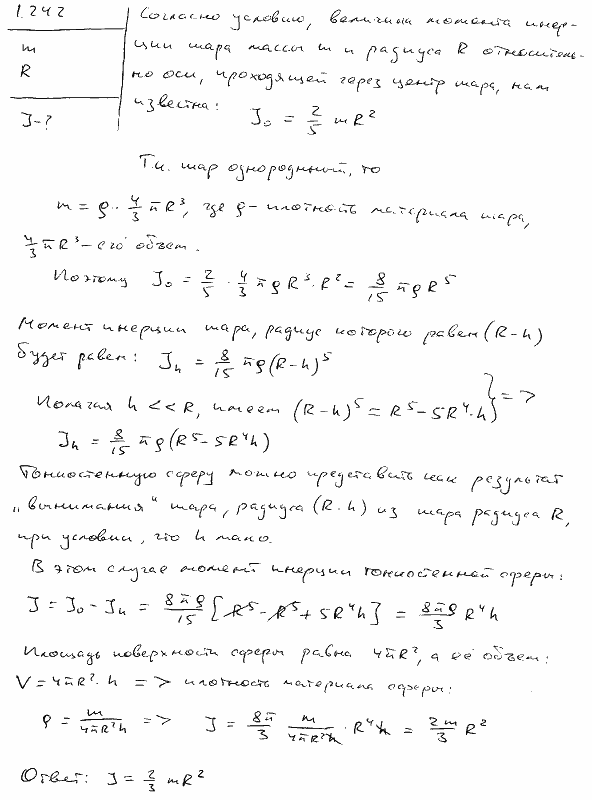 1.242
m
R
J-?
Согласно условию, величина момента инер-
ции шара массы m и радиуса R относитель-
но оси, проходящей через центр шара, нам
известна: J₀ = 2/5 mR²
Т.к. шар однородный, то
m = ρ · 4/3 πR³, где ρ - плотность материала шара,
4/3 πR³ - его объем.
Поэтому J₀ = 2/5 · 4/3 πρR³·R² = 8/15 πρR⁵
Момент инерции шара, радиус которого равен (R-h)
будет равен: Jₕ = 8/15 πρ(R-h)⁵
Полагая h << R, имеем (R-h)⁵ = R⁵-5R⁴·h } =>
Jₕ = 8/15 πρ(R⁵-5R⁴h)
Тонкостенную сферу можно представить как результат
„вынимания" шара, радиуса (R-h) из шара радиуса R,
при условии, что h мало.
В этом случае момент инерции тонкостенной сферы:
J = J₀ - Jₕ = 8πρ/15 [R⁵-R⁵+5R⁴h] = 8πρ/3 R⁴h
Площадь поверхности сферы равна 4πR², а её объем:
V = 4πR²·h => плотность материала сферы:
ρ = m/4πR²h => J = 8π/3 m/4πR²h · R⁴h = 2m/3 R²
Ответ: J = 2/3 mR²